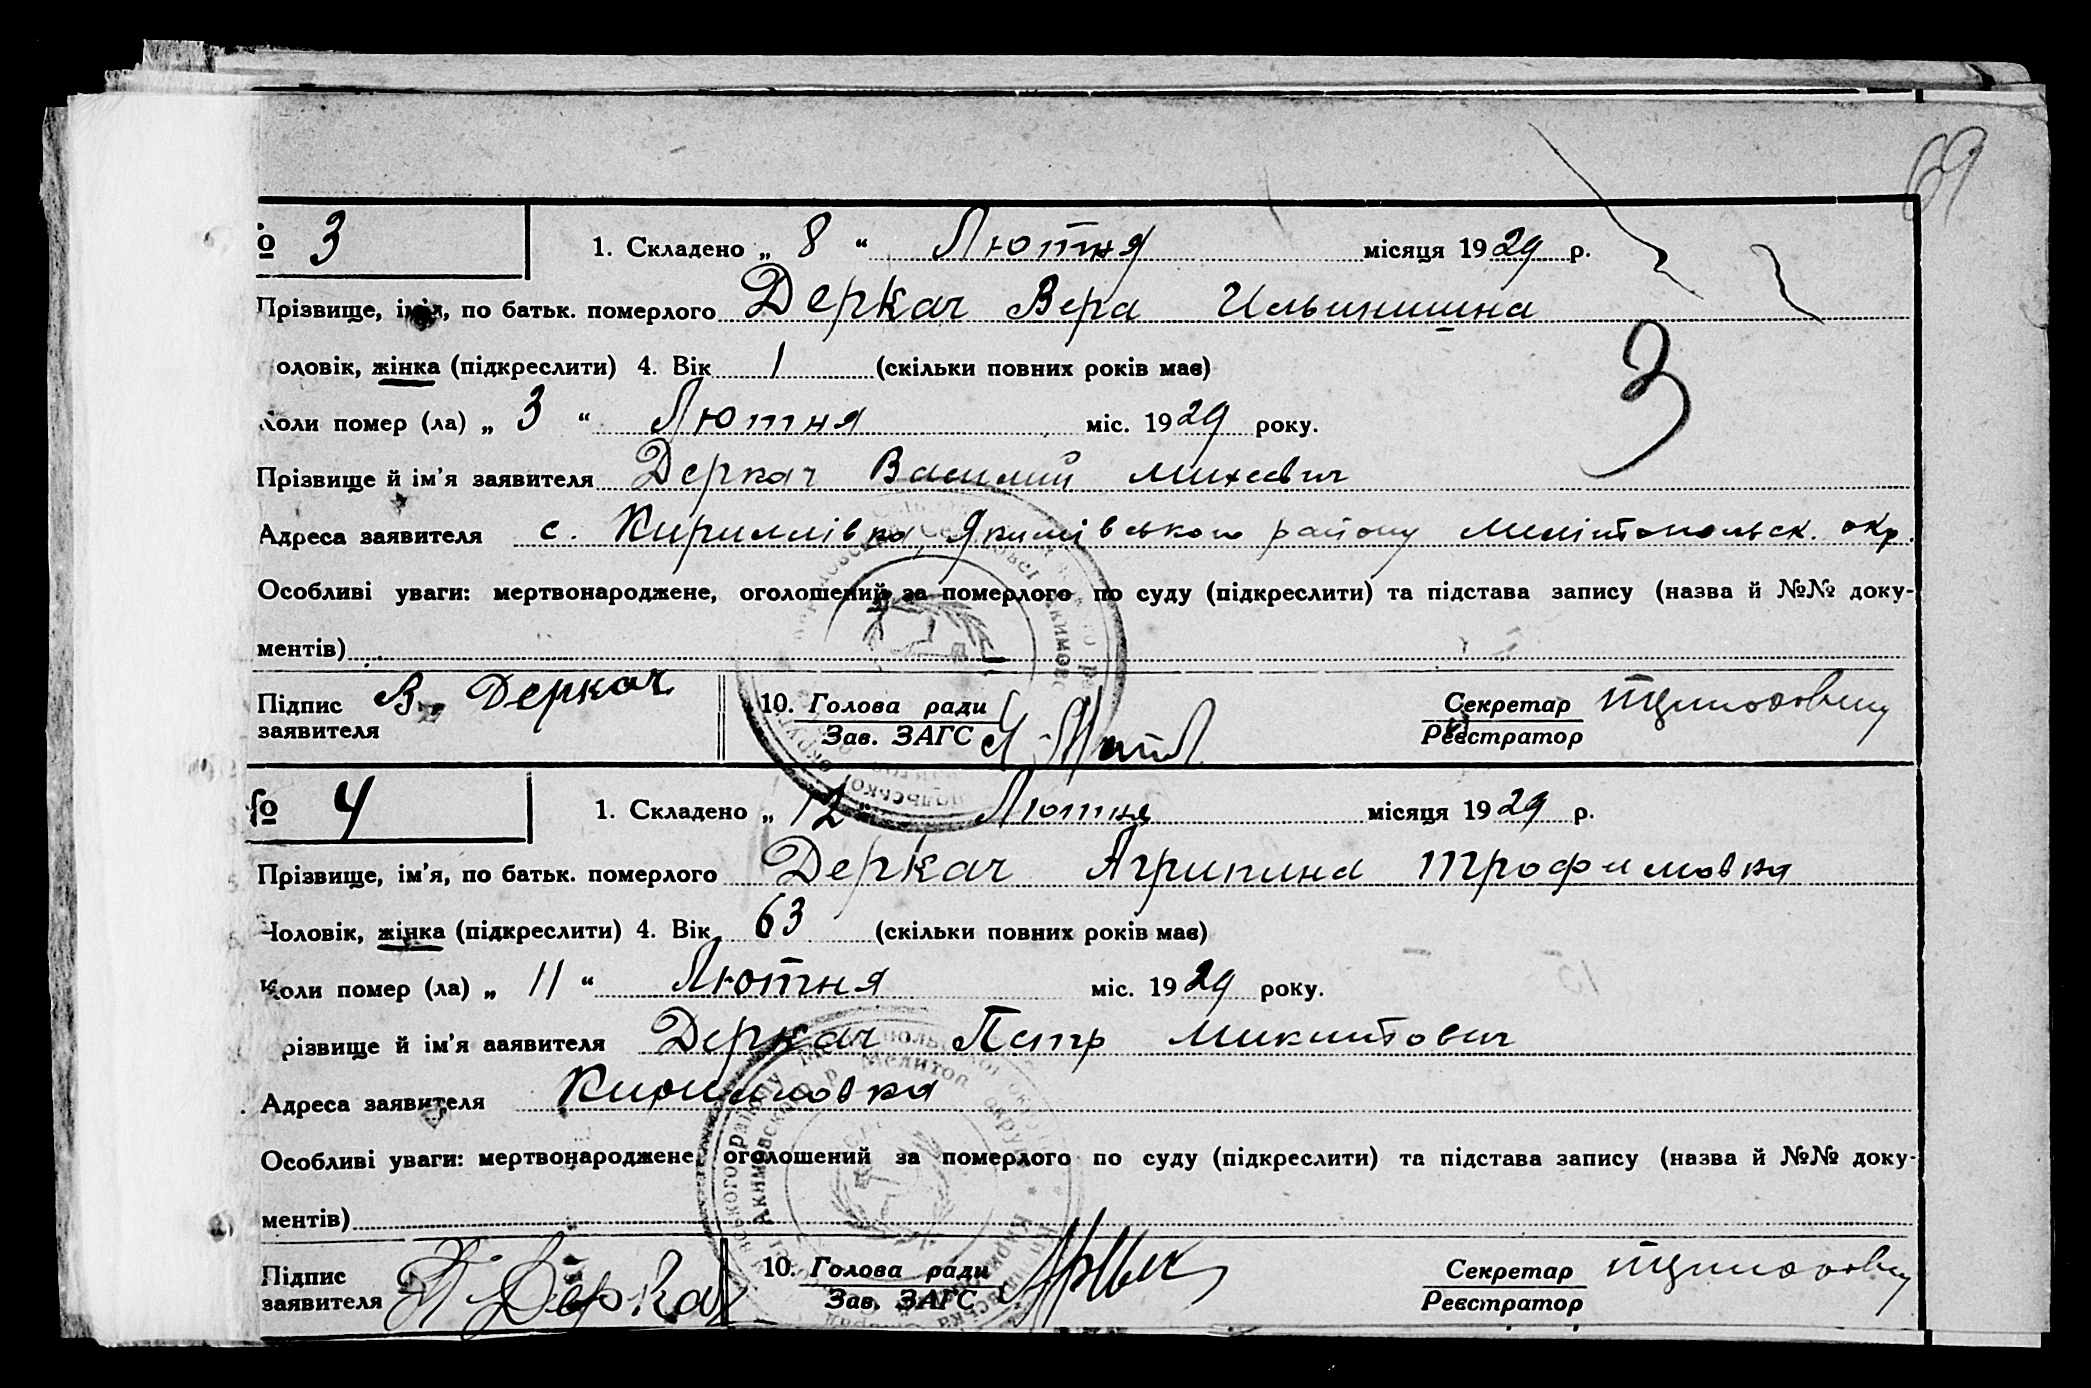 69
№ 3 1. Складено „ 8 “ Лютня місяця 1929 р.
Прізвище, ім'я, по батьк. померлого Деркач Вера Ильинишна
оловік, жінка (підкреслити) 4. Вік 1 (скільки повних років має)
Коли помер (ла) „ 3 “ Лютня міс. 1929 року.
3
Прізвище й ім'я заявителя Деркач Василий Михеевич
Адреса заявителя с. Кириллівка, Якимівського району Мелітопольск. окр.
Особливі уваги: мертвонароджене, оголошений за померлого по суду (підкреслити) та підстава запису (назва й №№ доку-
ментів)
Підпис заявителя В. Деркач 10. Голова ради Секретар
Зав. ЗАГС Реєстратор
№ 4 1. Складено „ 12 “ Лютня місяця 1929 р.
Прізвище, ім'я, по батьк. померлого Деркач Агрипина Трофимовна
Чоловік, жінка (підкреслити) 4. Вік 63 (скільки повних років має)
Коли помер (ла) „ 11 “ Лютня міс. 1929 року.
різвище й ім'я заявителя Деркач Петр Микитович
Адреса заявителя Кирилловка
Особливі уваги: мертвонароджене, оголошений за померлого по суду (підкреслити) та підстава запису (назва й №№ доку-
ментів)
Підпис заявителя П Деркач 10. Голова ради Секретар
Зав. ЗАГС Реєстратор